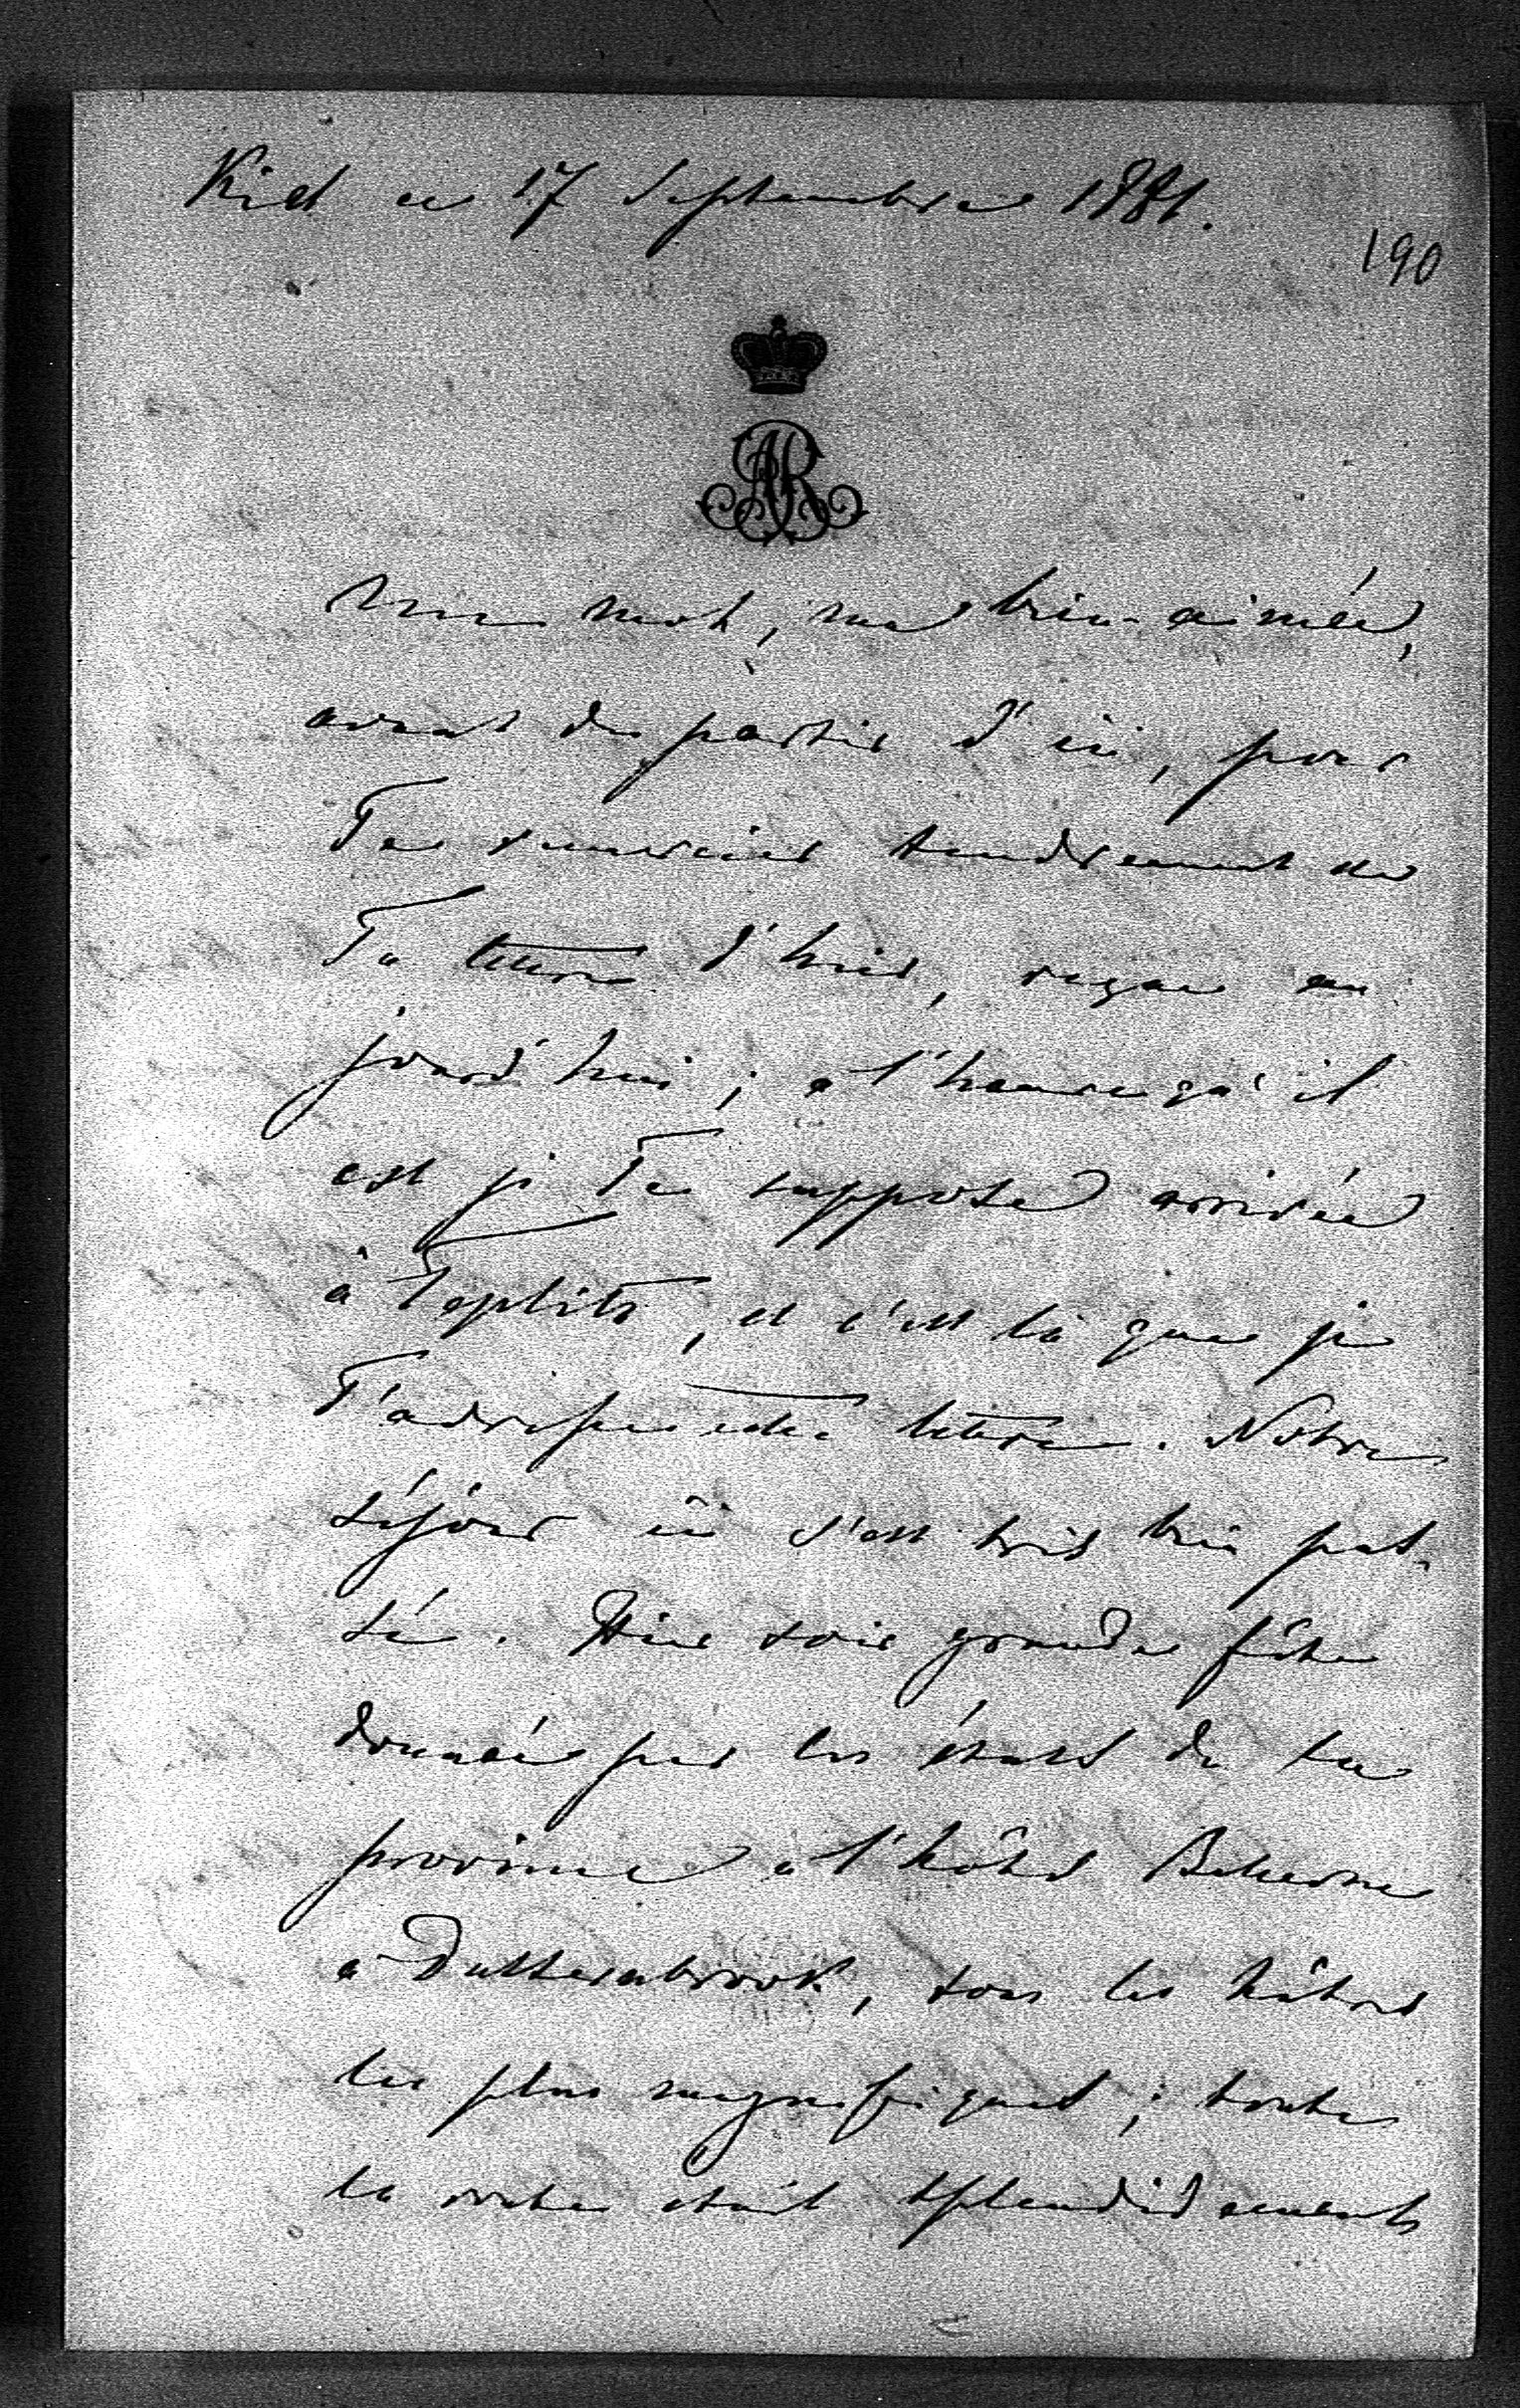 Kiel ce 17 Septembre 1881.
190
AR
Un mot, ma bien-aimée,
avant de partir d'ici, pour
Te remercier tendrement de
Ta lettre d'hier, reçue au
jourd'hui; à l'heure qu'il
est je Te suppose arrivée
à Teplitz, et c'est là que je
T'adresse cette lettre. Notre
séjour ici s'est très bien pas-
sé. Hier soir grande fête
donnée par les états de la
province à l'hôtel Bellevue
à Düsternbrook, sous les hêtres
les plus magnifiques; toute
la route était splendidement